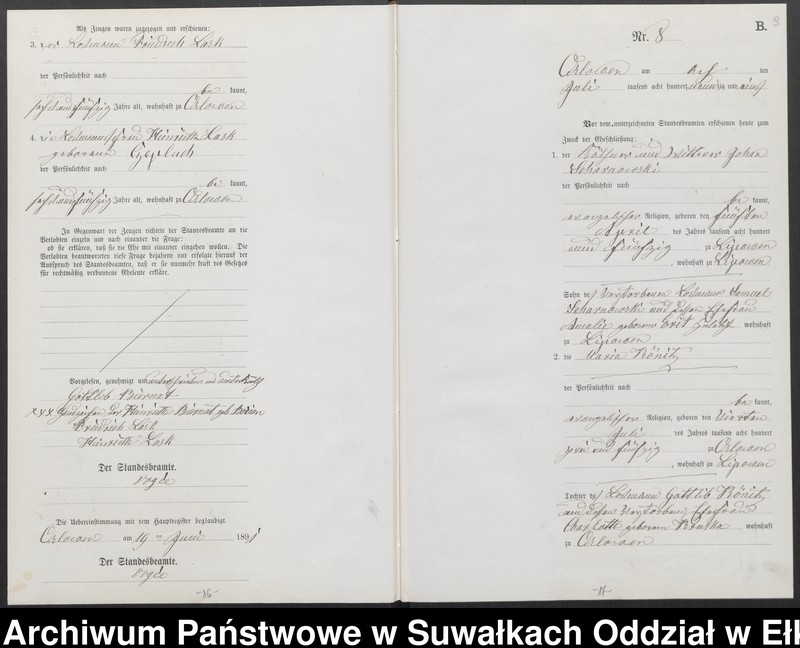 Als Zeugen waren zugezogen und erschienen:
3. der Losmann Friedrich Lask
der Persönlichkeit nach
be kannt,
sechsundfünfzig Jahre alt, wohnhaft zu Orlowen
4. die Losmannsfrau Henriette Lask
geborene
der Persönlichkeit nach
be kannt,
sechsundfünfzig Jahre alt, wohnhaft zu Orlowen
In Gegenwart der Zeugen richtete der Standesbeamte an die
Verlobten einzeln und nach einander die Frage:
ob sie erklären, daß sie die Ehe mit einander eingehen wollen. Die
Verlobten beantworteten diese Frage bejahend und erfolgte hierauf der
Ausspruch des Standesbeamten, daß er sie nunmehr kraft des Gesetzes
für rechtmäßig verbundene Eheleute erkläre.
Vorgelesen, genehmigt und unterschrieben und unterkreuzt
Gottlieb Biernat
xxx Handzeichen der Henriette Biernat geb.
Friedrich Lask
Henriette Lask
Der Standesbeamte.
Die Uebereinstimmung mit dem Hauptregister beglaubigt.
Orlowen am 19 ten Juni 1891
Der Standesbeamte.
-16-
B.
9
Nr. 8
Orlowen am den
Juli tausend acht hundert neunzig und eins
Vor dem unterzeichneten Standesbeamten erschienen heute zum
Zweck der Eheschließung:
1. der Käthner und Wittwer Johan
Scharnowski
der Persönlichkeit nach
be kannt,
evangelischer Religion, geboren den fünften
April des Jahres tausend acht hundert
und fünfzig zu Lipowen
, wohnhaft zu Lipowen
Sohn des verstorbenen Losmann Samuel
Scharnowski und dessen Ehefrau
Amalie geborene wohnhaft
zu Lipowen
2. die Maria Könitz
der Persönlichkeit nach
be kannt,
evangelischer Religion, geboren den vierten
Juli des Jahres tausend acht hundert
zwei und fünfzig zu Orlowen
, wohnhaft zu Lipowen
Tochter des Losmann Gottlieb Könitz
und dessen verstorbenen Ehefrau
Charlotte geborene wohnhaft
zu Orlowen
-17-
Archiwum Państwowe w Suwałkach Oddział w Ełk